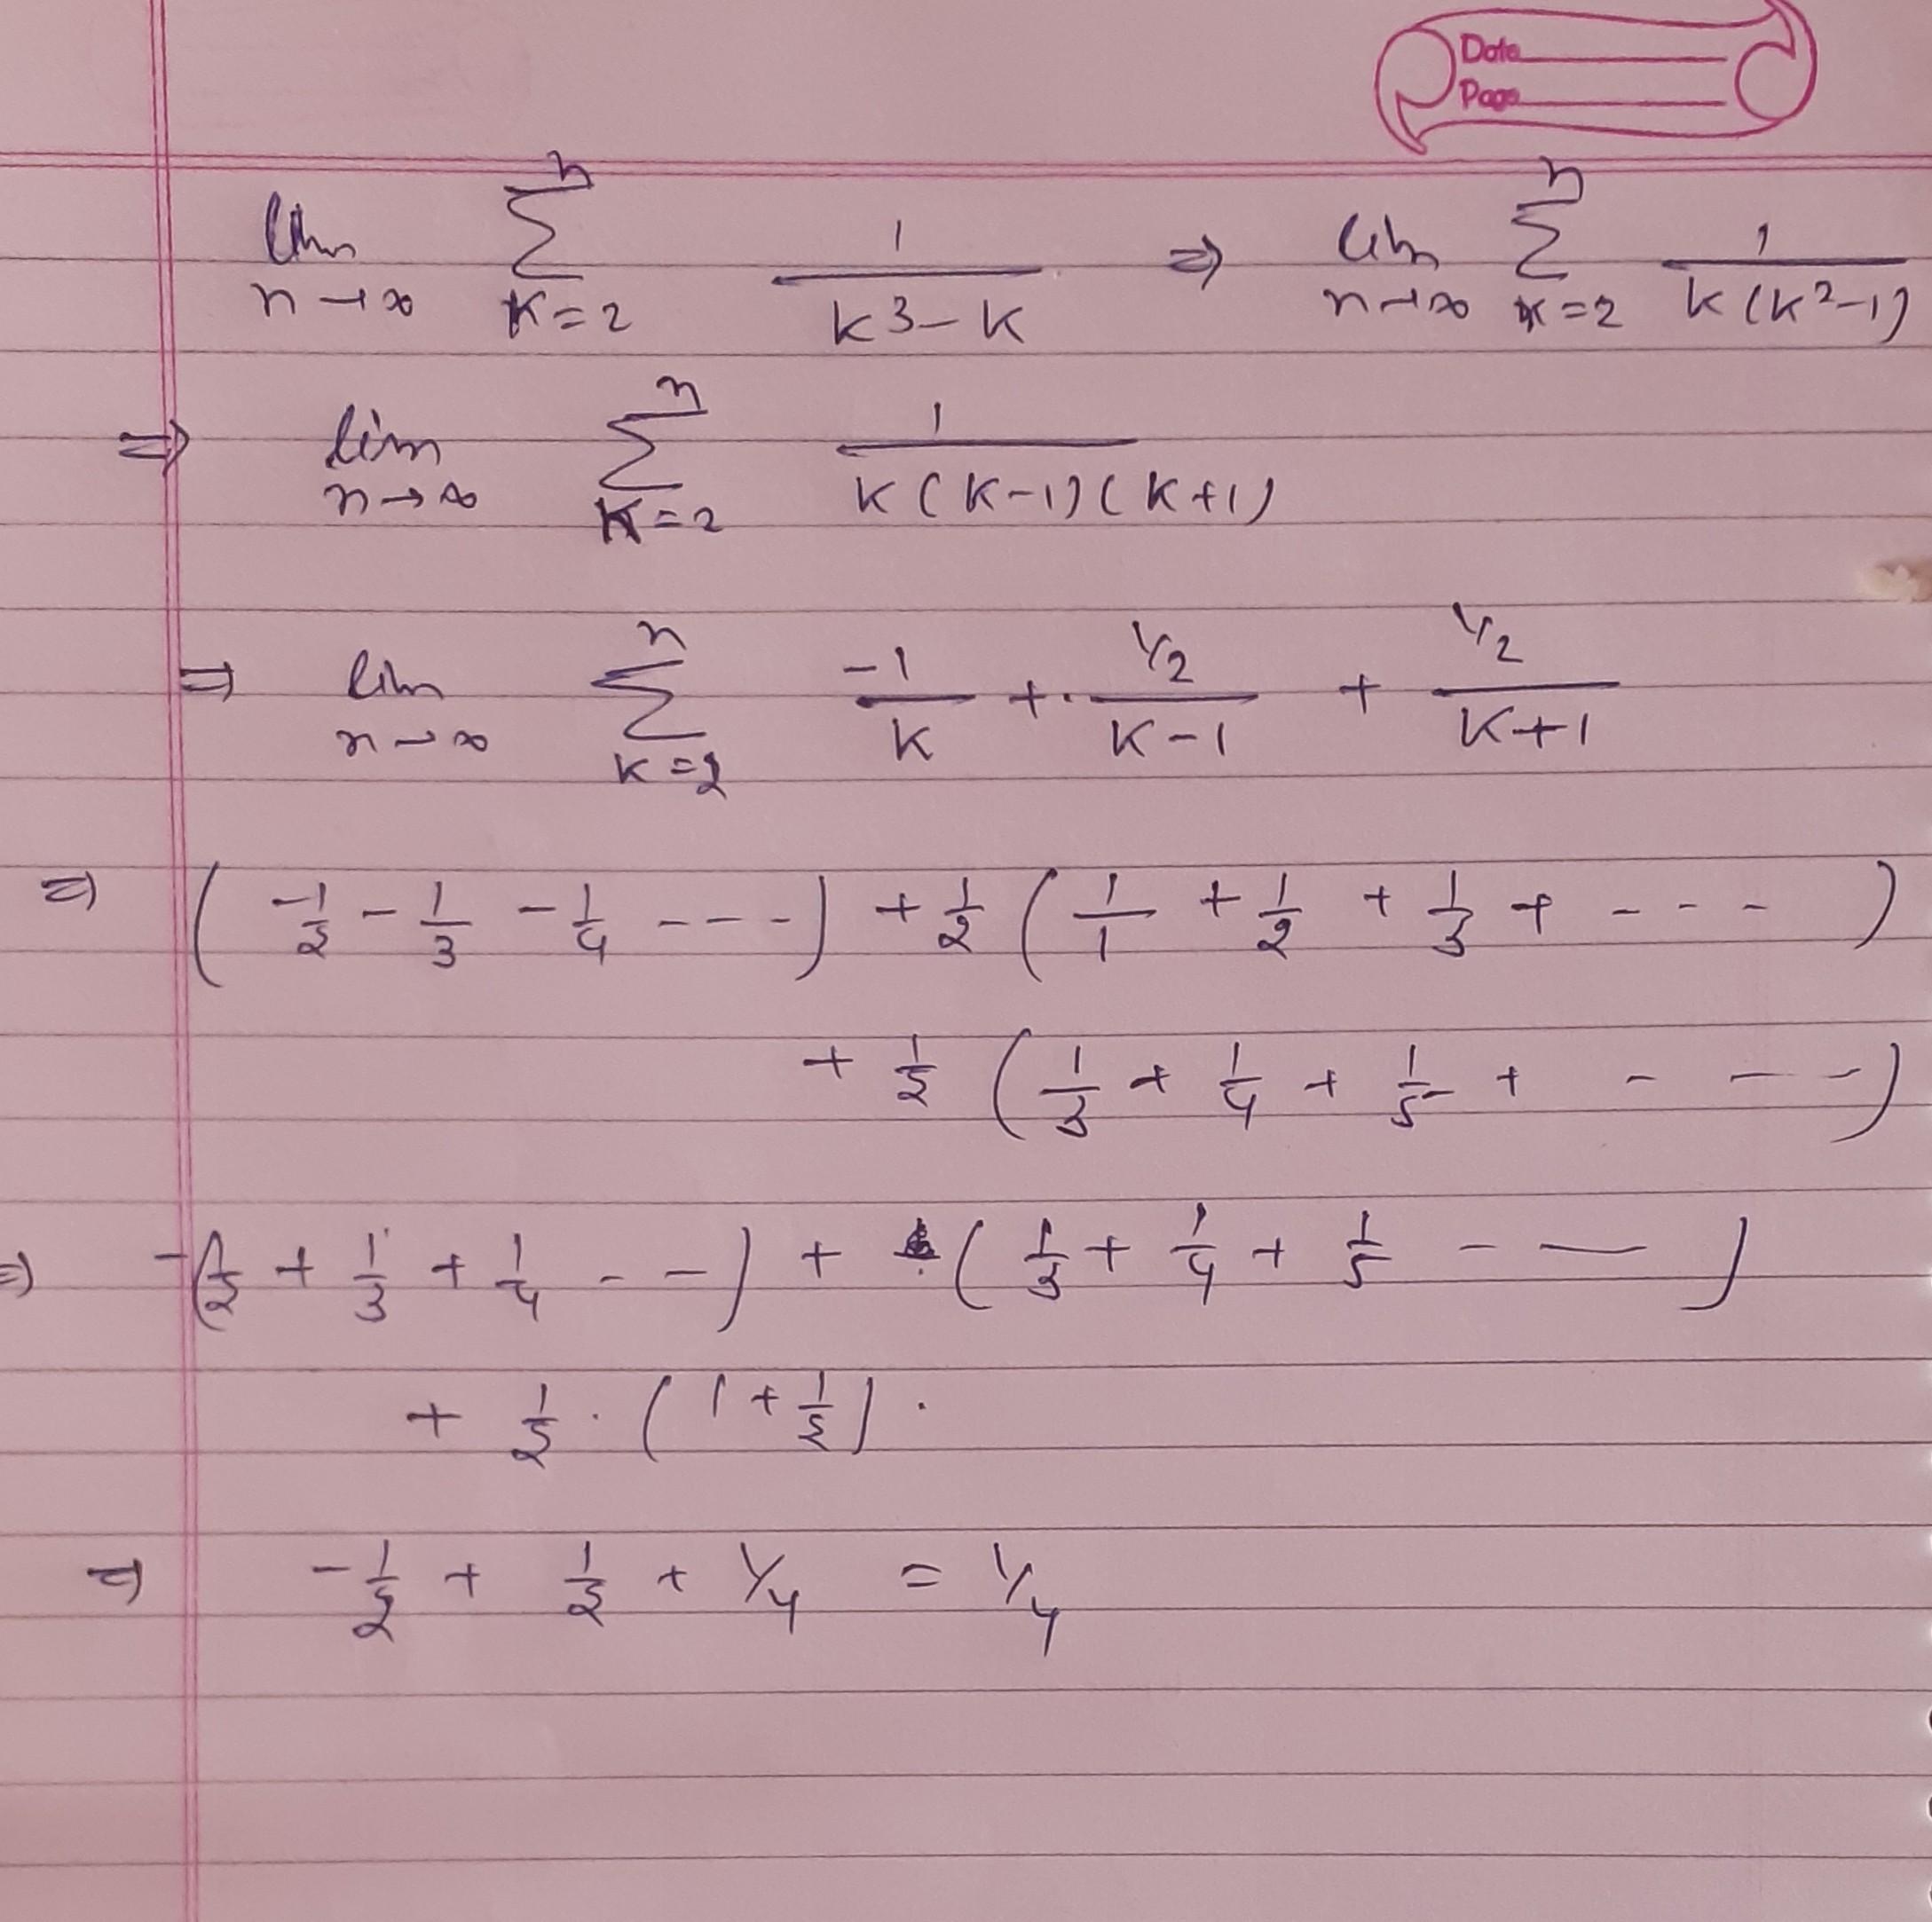 Date
Page
lim n→∞ n Σ K=2 1/(K3-K) ⇒ lim n→∞ n Σ K=2 1/(K(K2-1))
⇒ lim n→∞ n Σ K=2 1/(K(K-1)(K+1))
⇒ lim n→∞ n Σ K=2 -1/K + (1/2)/(K-1) + (1/2)/(K+1)
⇒ (-1/2 - 1/3 - 1/4 ----) + 1/2 (1/1 + 1/2 + 1/3 + - - -)
+ 1/2 (1/3 + 1/4 + 1/5 + - - -)
⇒ -(1/2 + 1/3 + 1/4 - -) + (1/3 + 1/4 + 1/5 - —)
+ 1/2 · (1 + 1/2) .
⇒ -1/2 + 1/2 + 1/4 = 1/4